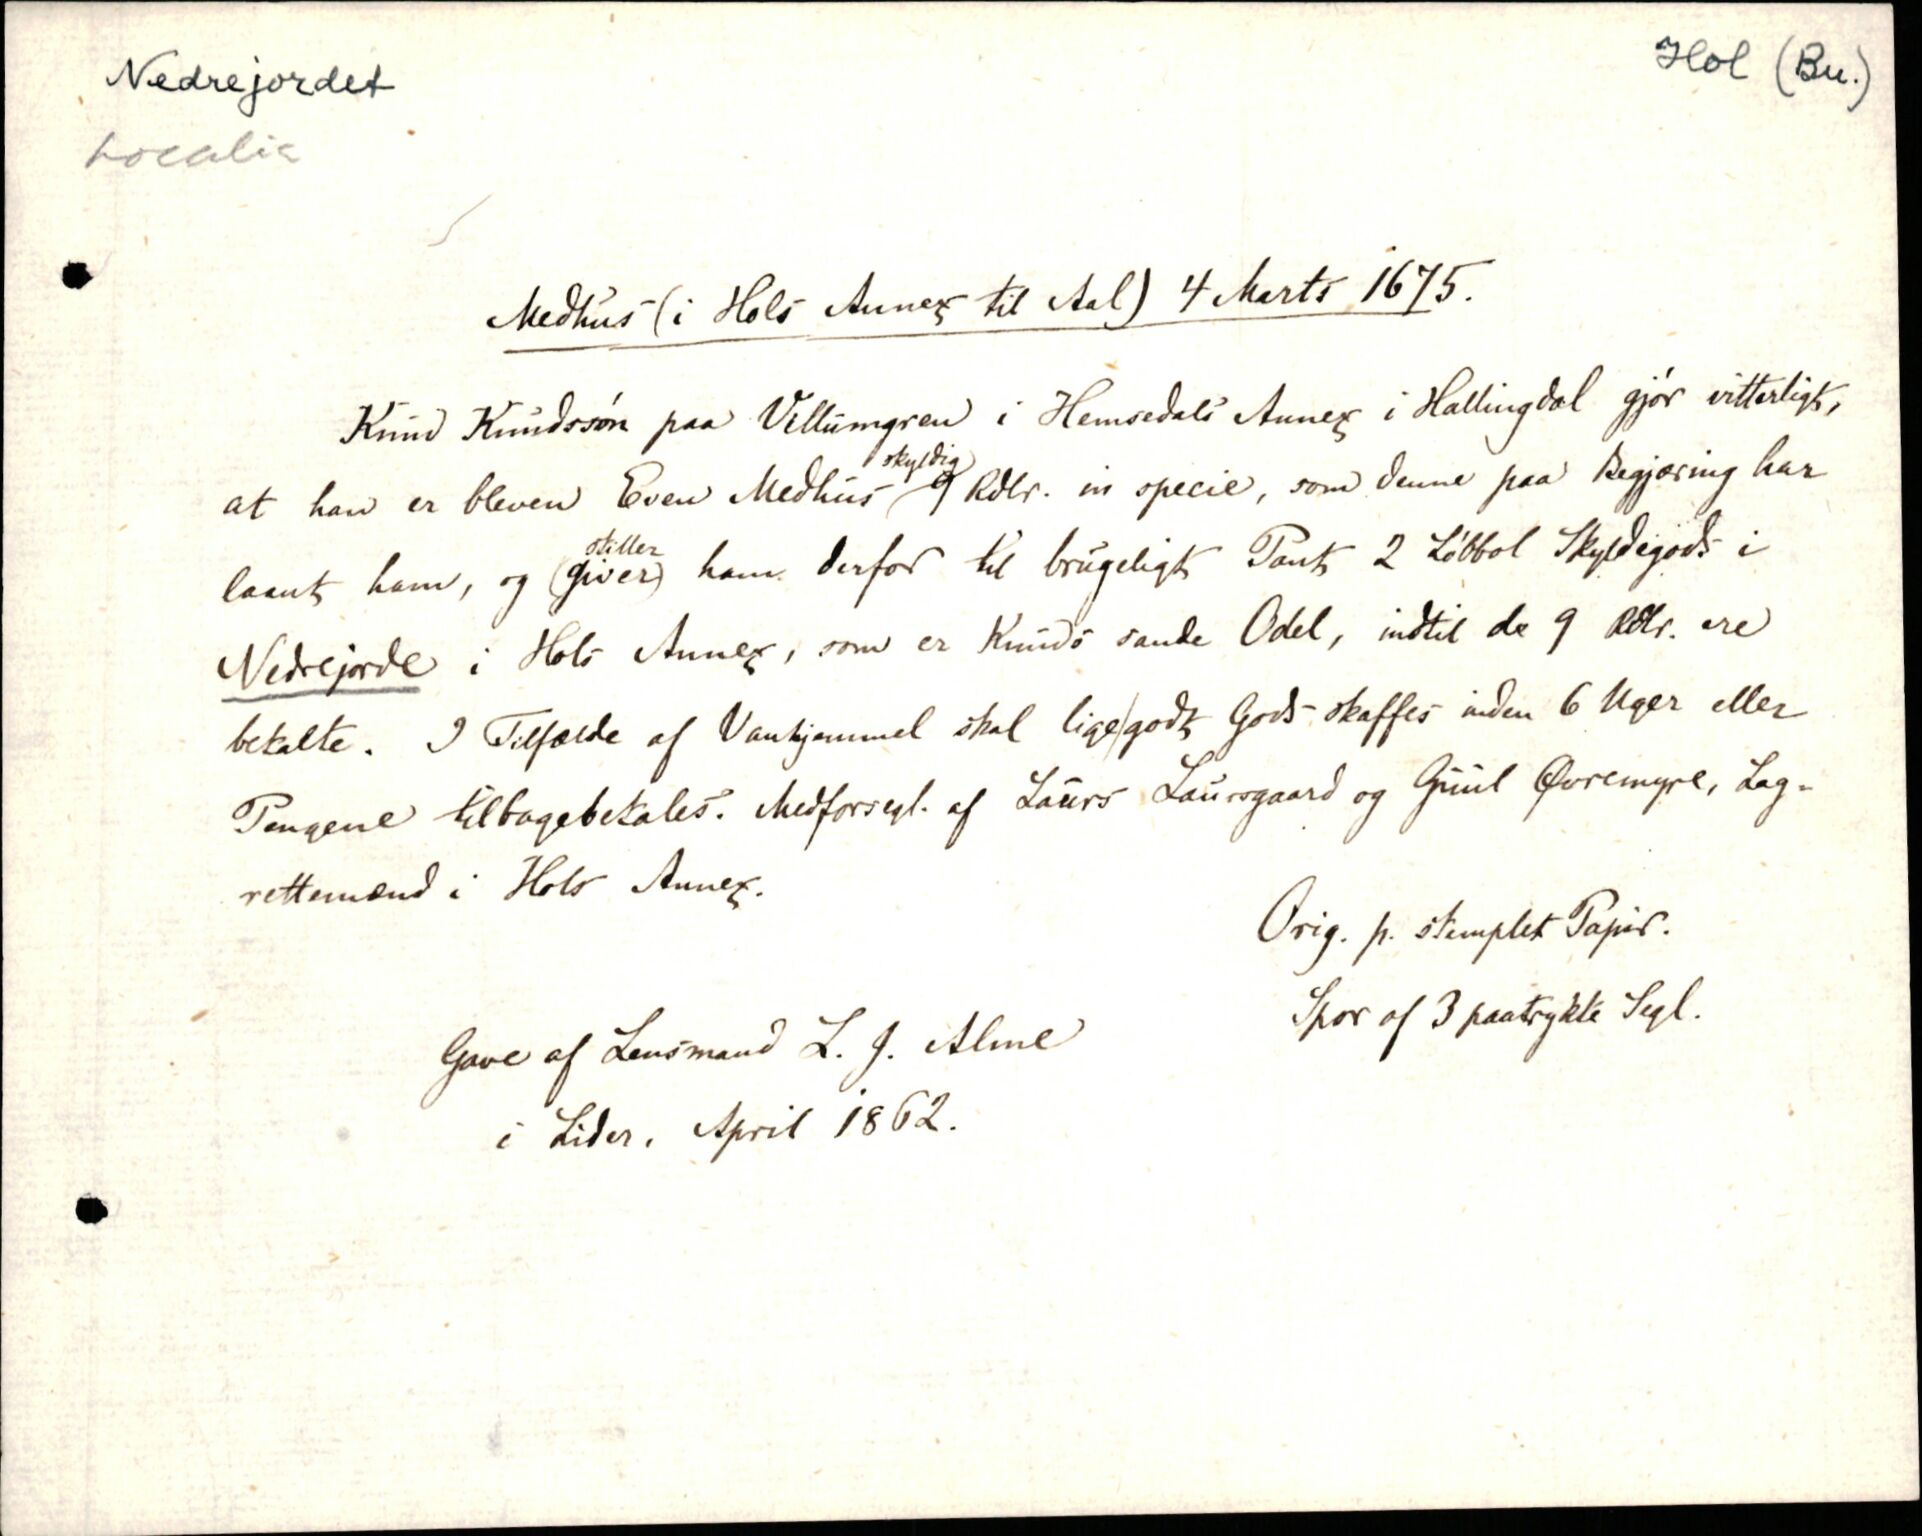 Nedrejordet
Hol (Bu.)
Localia
Medhus (i Hols Annex til Aal) 4 Marts 1675.
Knud Knudssøn paa Villumgren i Hemsedals Annex i Hallingdal gjør vitterligt,
skyldig
at han er bleven Even Medhus 9 Rdlr. in specie, som denne paa Begjæring har
stiller
laant ham, og (giver) ham derfor til brugeligt Pant 2 Løbbol Skyldegods i
Nedrejorde i Hols Annex, som er Knuds sande Odel, indtil de 9 Rdlr. ere
betalte. I Tilfælde af Vanhjemmel skal lige godt Gods skaffes inden 6 Uger eller
Pengene tilbagebetales. Medforsegl. af Laurs Laursgaard og Guul Øvremyre, Lag-
rettemænd i Hols Annex.
Orig. p. stemplet Papir.
Spor af 3 paatrykte Segl.
Gave af Lensmand L. J. Alme
i Lider. April 1862.